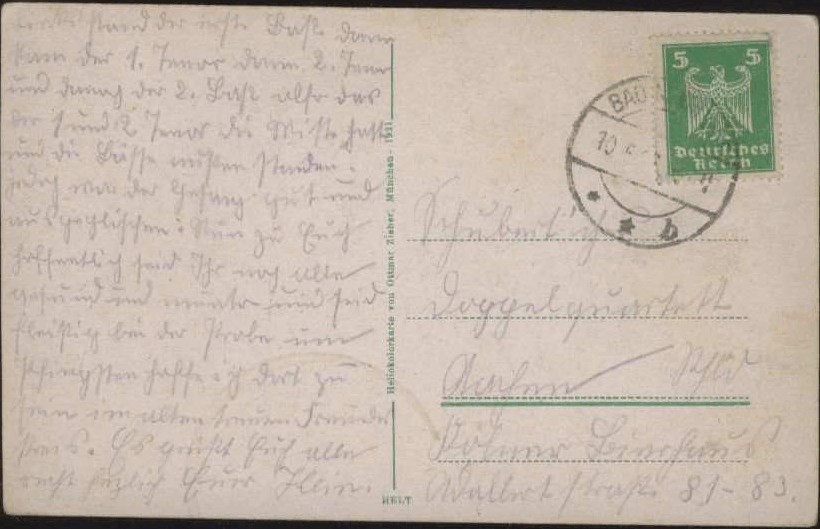 links stand der erste Baß dann
kam der 1. Tenor dann 2. Tenor
und danach der 2. Baß also das
der 1 und 2 Tenor die Mitte hatte
und die Bässe mußten standen.
jedoch war der Gesang gut und
ausgeglischen. Nun zu Euch
hoffentlich seid Ihr noch alle
gesund und munter und seid
fleißig bei der Probe um
Pfingsten hoffe ich dort zu
sein im alten treuen Freundes
kreis. Es grüßt Euch alle
recht herzlich Euer
Heliokolorkarte von Ottmar Zieher, München
HELT
5 5
Deutsches
Reich
BAD
b
Schubert'sch
Doppelquartett
Aachen Rhld
Kölner Bierhaus
Adalbert straße 81-83.